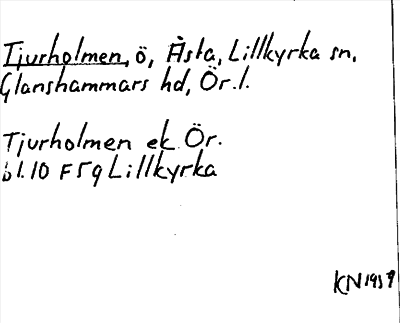 Tjurholmen, ö, Åsta, Lillkyrka sn,
Glanshammars hd, Ör. l.
Tjurholmen ek Ör.
bl. 10 F59 Lillkyrka
KN 1959